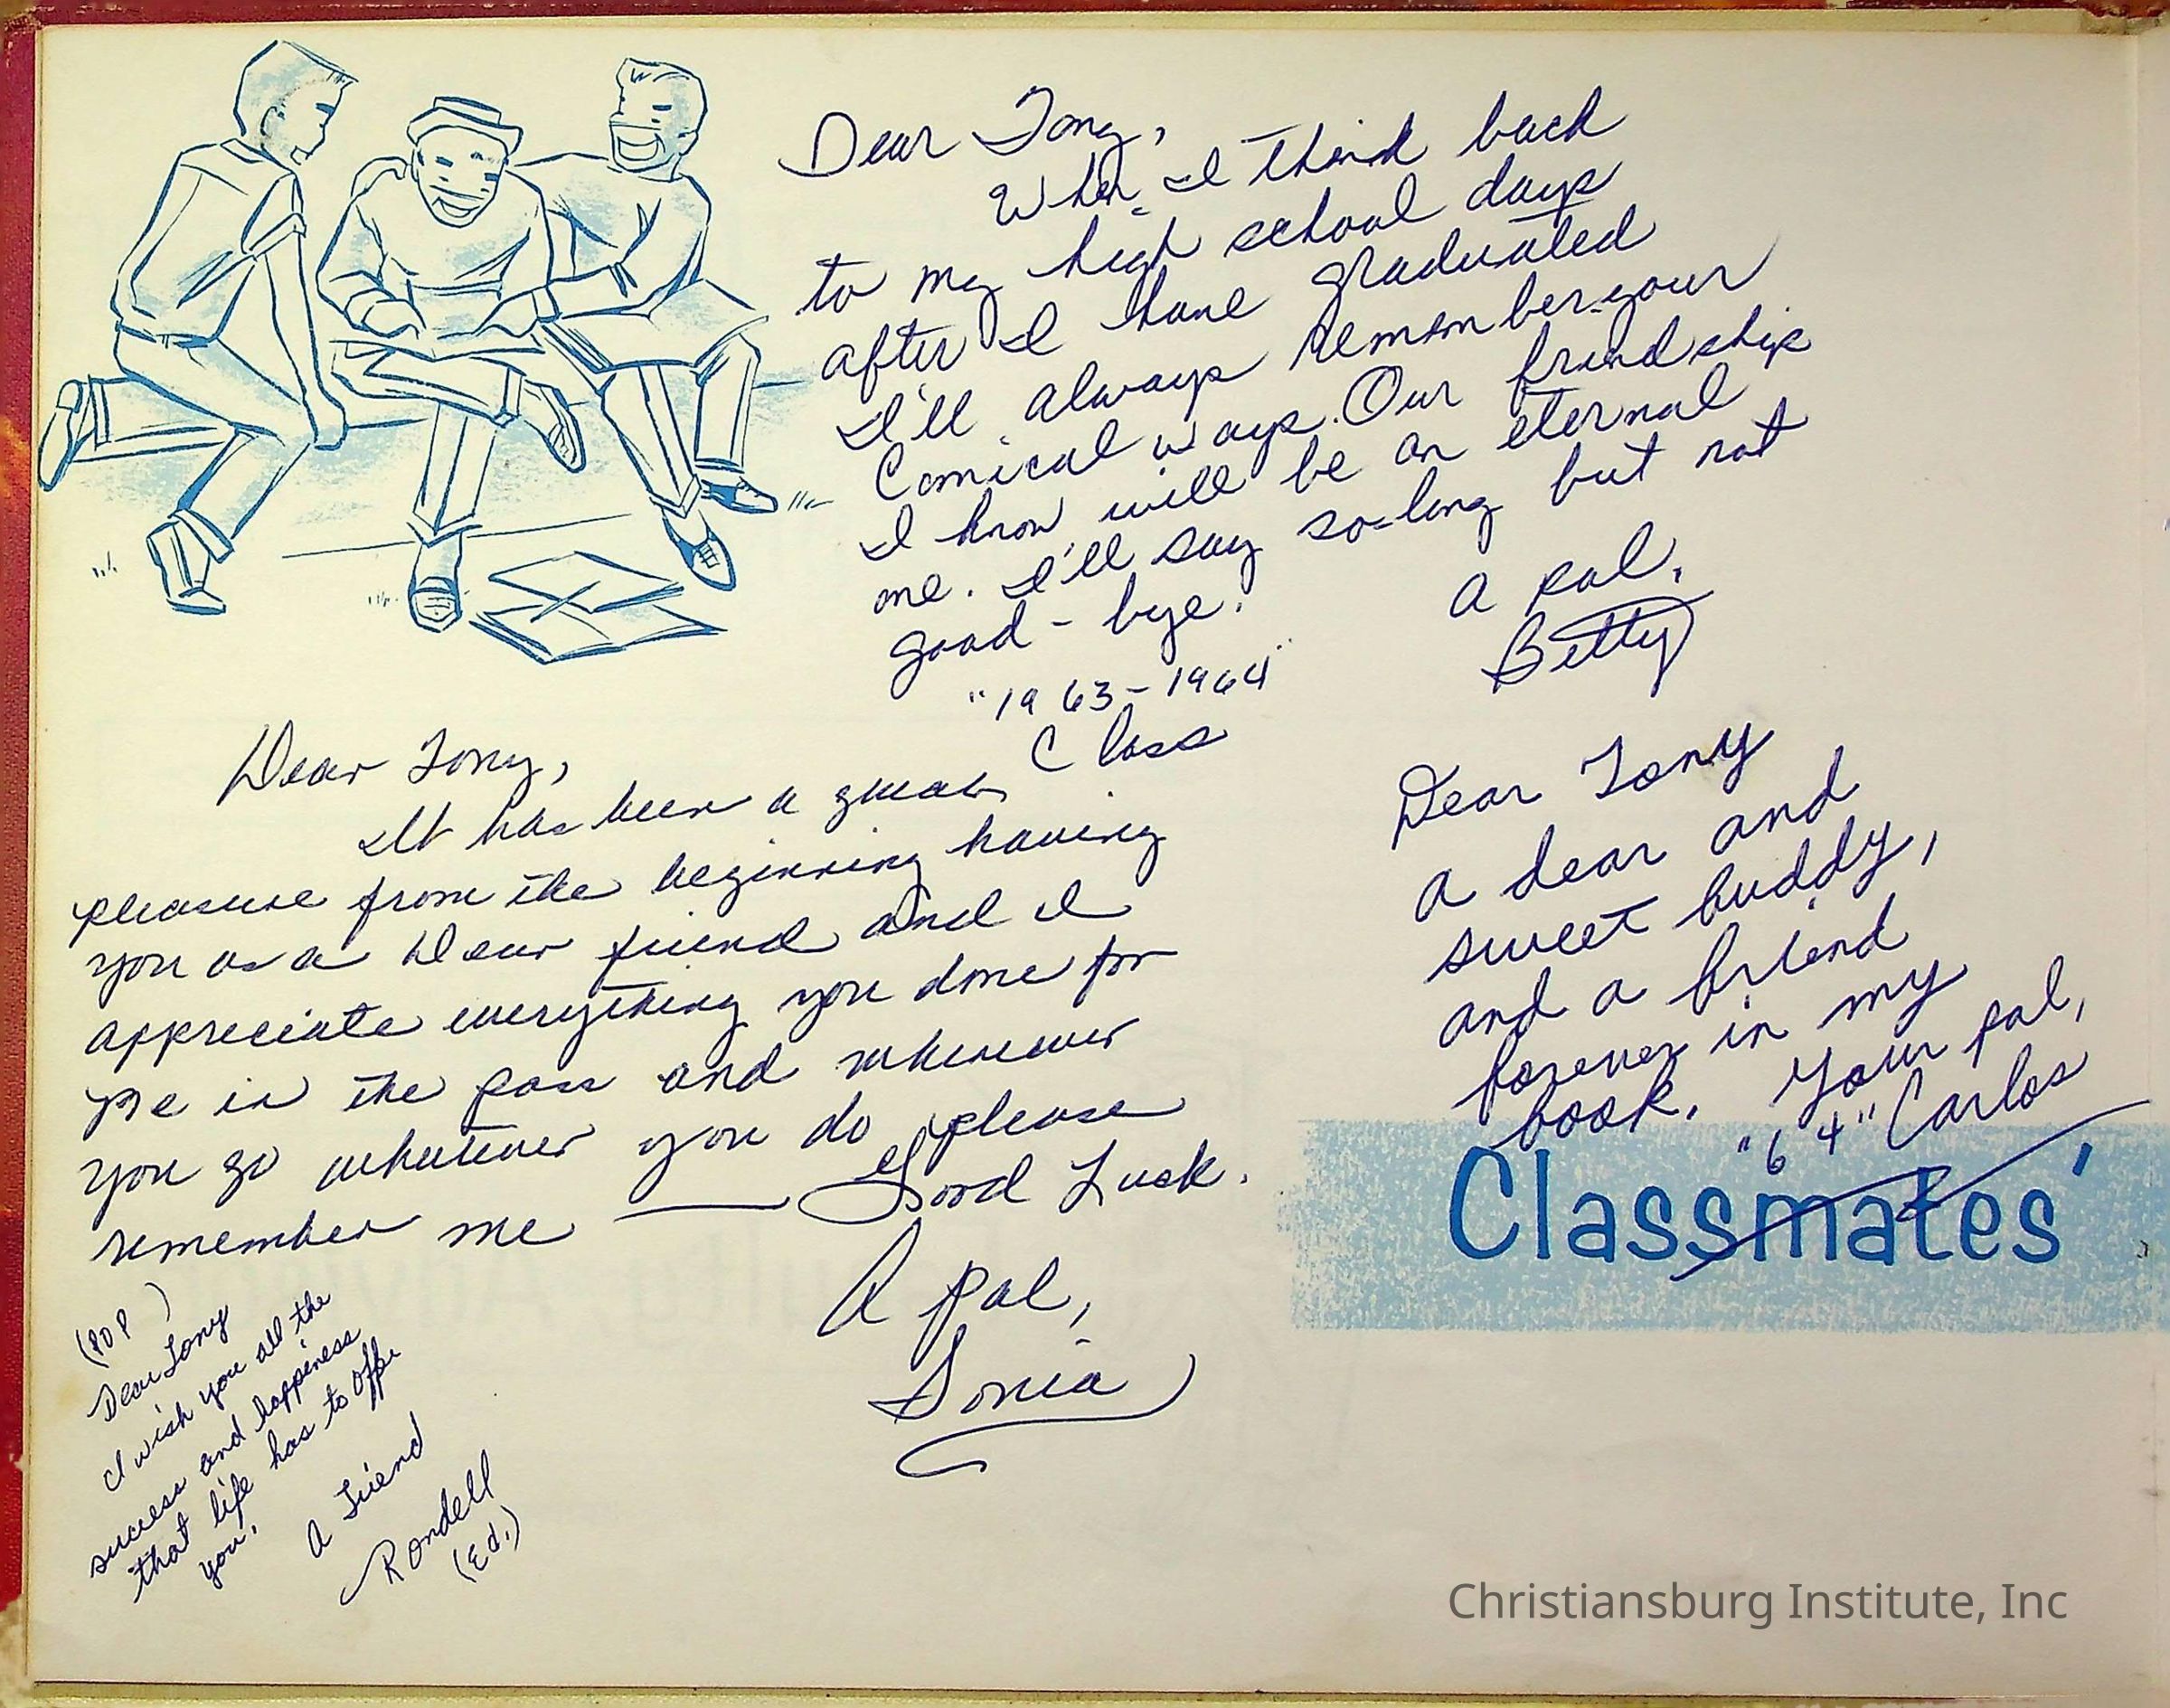 Dear Tony,
When I think back
to my high school days
after I have graduated
I'll always remember your
Comical ways. Our friendship
I know will be an eternal
one. I'll say so-long but not
good-bye.
a pal,
Betty
"1963-1964"
Class
Dear Tony,
It has been a great
pleasure from the beginning having
you as a Dear friend and I
appreciate everything you done for
me in the pass and whenever
you go whatever you do please
remember me — Good Luck.
A pal,
Sonia
Dear Tony
a dear and
sweet buddy,
and a friend
forever in my
book. Your pal,
"64" Carlos
Classmates'
(POP)
Dear Tony
I wish you all the
success and happiness
that life has to offer
you.
A Friend
Rondell
(Ed.)
Christiansburg Institute, Inc